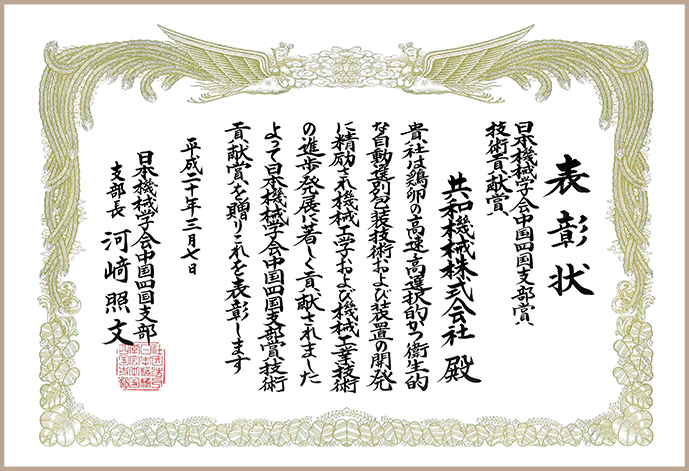 表彰状
日本機械学会中国四国支部賞
技術貢献賞
共和機械株式会社 殿
貴社は鶏卵の高速高選択的かつ衛生的
な自動選別包装技術および装置の開発
に精励され機械工学および機械工業技術
の進歩発展に著しく貢献されました
よって日本機械学会中国四国支部賞技術
貢献賞を贈りこれを表彰します
平成二十年三月七日
日本機械学会中国四国支部
支部長 河﨑照文